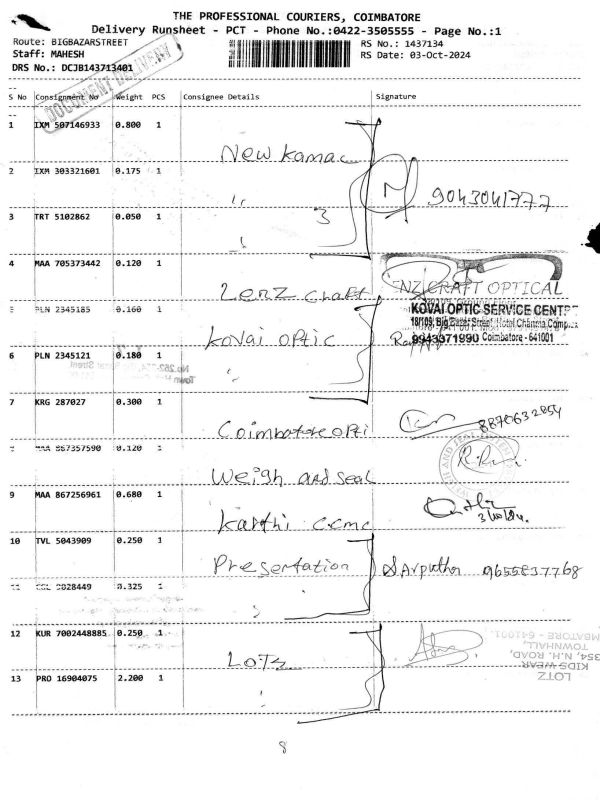 THE PROFESSIONAL COURIERS, COIMBATORE
Delivery Runsheet - PCT - Phone No.:0422-3505555 - Page No.:1
Route: BIGBAZARSTREET
RS No.: 1437134
Staff: MAHESH
RS Date: 03-Oct-2024
DRS No.: DCJB143713401
DOCUMENT DELIVERY
S No Consignment No Weight PCS Consignee Details Signature
1 IXM 507146933 0.800 1
New Kamac
2 IXM 303321601 0.175 1
M 9043041777
3 TRT 5102862 0.050 1
3
4 MAA 705373442 0.120 1
Lenz Craft
CRAFT OPTICAL
5 PLN 2345185 0.160 1
KOVAI OPTIC SERVICE CENT
Kovai optic
18/109, Big Bazar Street, Hotel Channma Comp
9943371990 Coimbatore - 641001
6 PLN 2345121 0.180 1
7 KRG 287027 0.300 1
Coimbatore opti
8870632854
MAA 867357590 0.120 1
Weigh and Seal
9 MAA 867256961 0.680 1
Karthi
10 TVL 5043909 0.250 1
Presentation
9655837768
2028449 0.325 1
12 KUR 7002448885 0.250 1
Lotz
MBATORE - 641001.
TOWNHALL,
354, N.H. ROAD,
KIDS WEAR
LOTZ
13 PRO 16904075 2.200 1
8